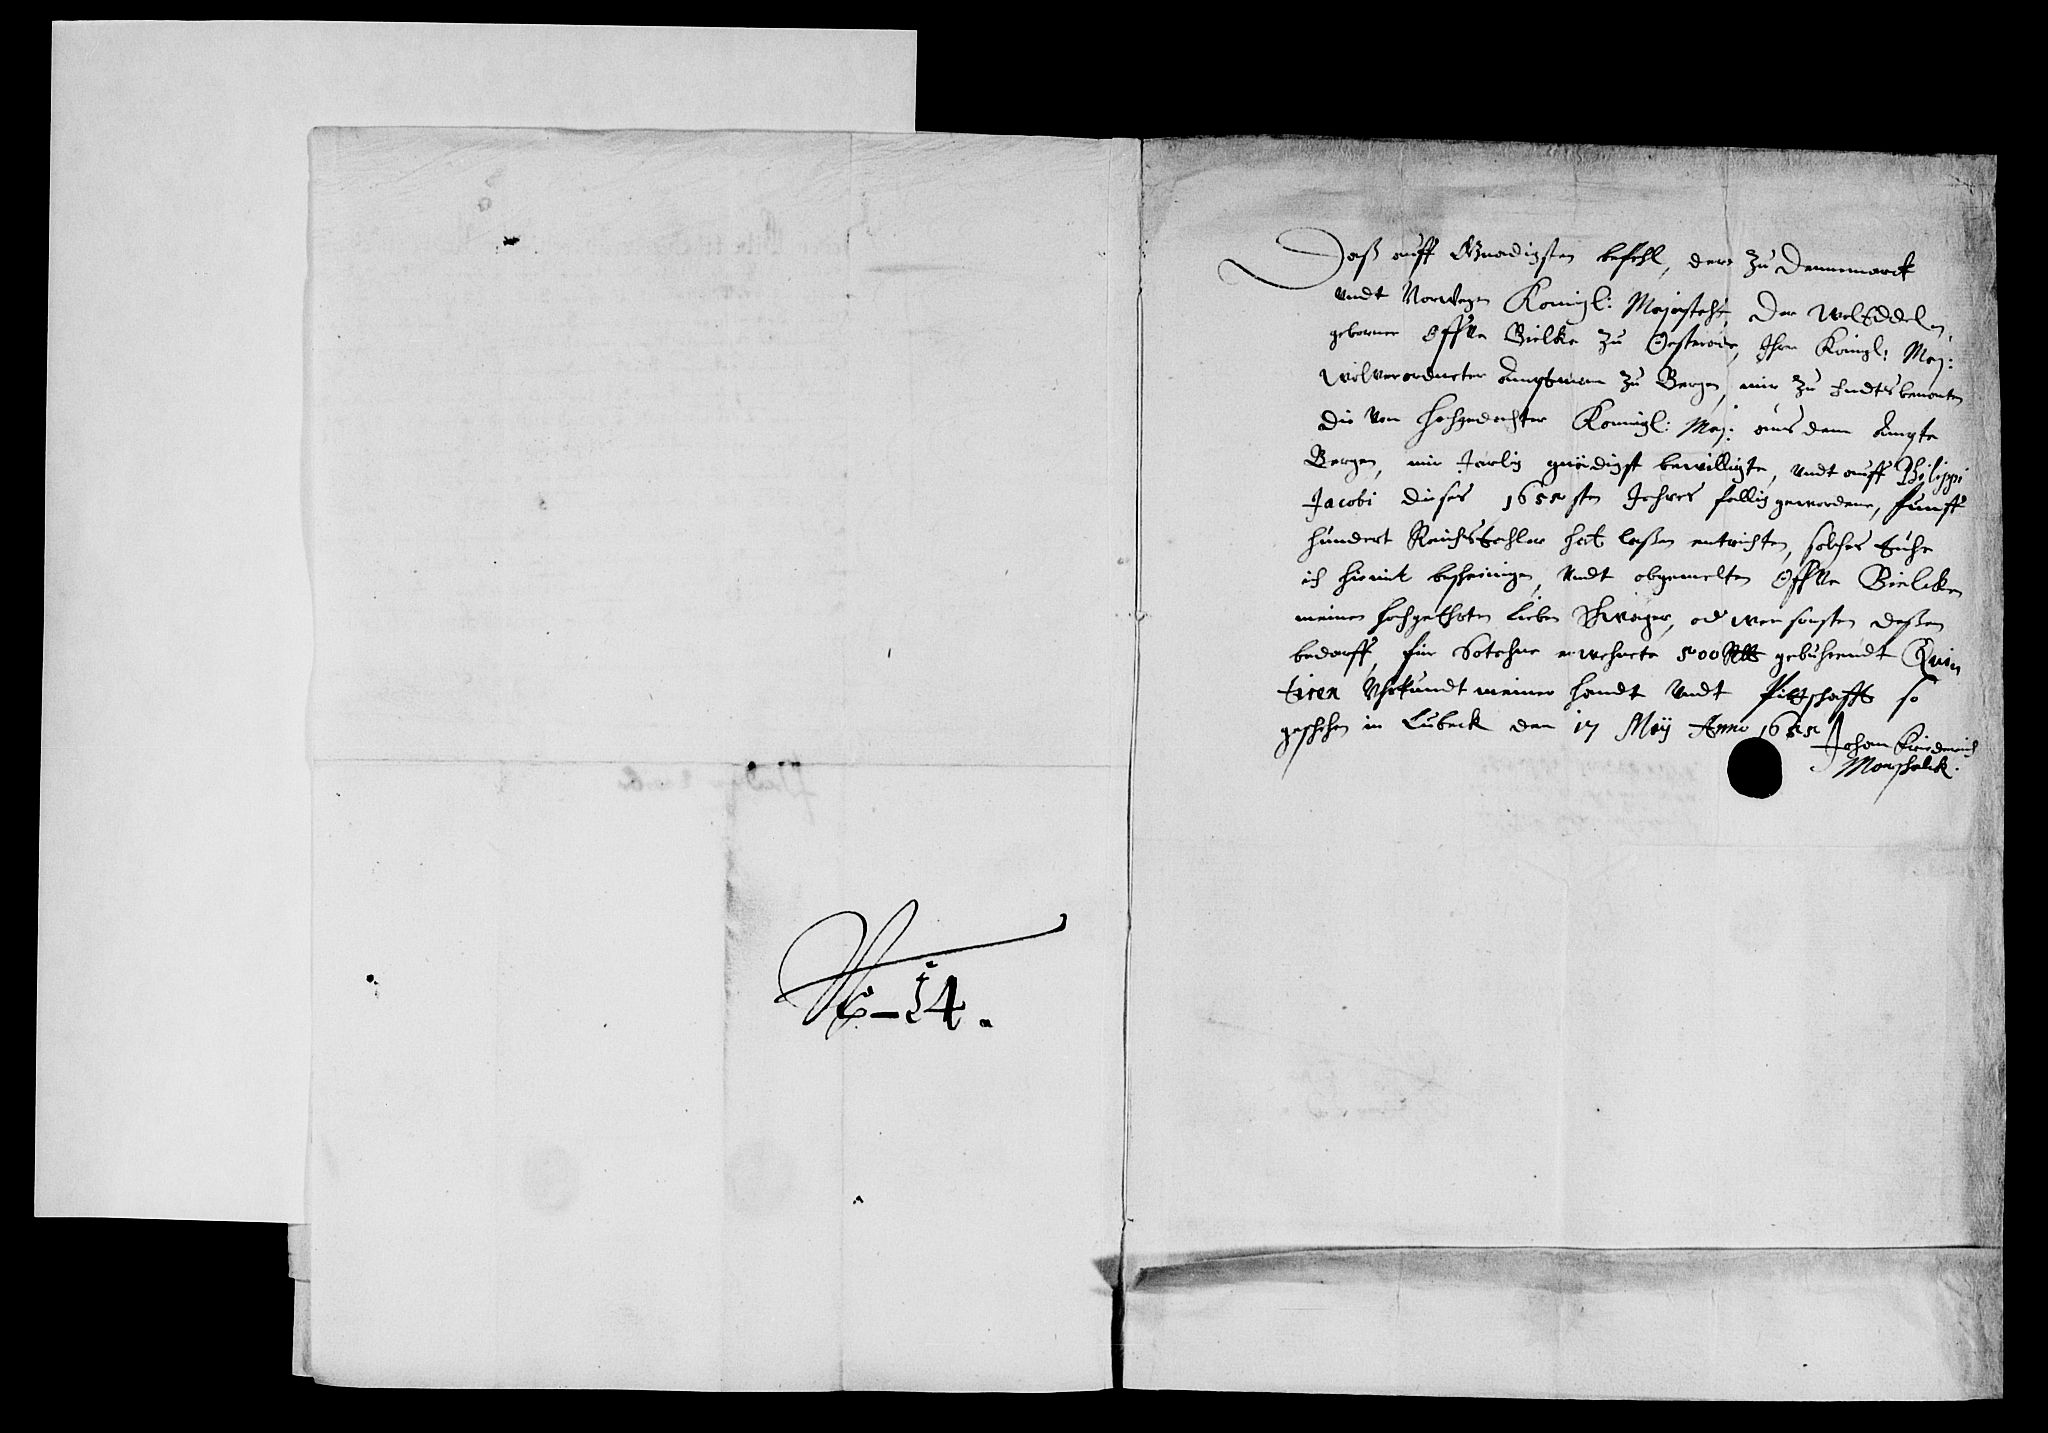 No 14.
Daß auff Gnadigsten befehl, der zu Dennemarck
undt Norwegen Konigl: Majesteht, Der WolEddel
geborner Offve Bielke zu Oesterode, Ihr Königl: May:
Wolverordneter Amptman zu Bergen, mir zu Endtsbenanten
die von hochgedachter Konnigl: May: aus dem Ampte
Bergen, mir Jarlig gnädigst bewilligte, undt auff Philippi
Jacobi dieses 1655sten Jahres fallig gewordene, funff
hundert Reichsthaler hat laßen entrichten, solches thue
ich hiemit bescheinigen, Undt obgemelten Offve Bielcken
meinen hochgeehrten Lieben Schwager, od wer sonsten deßen
bedarff, für Sotahne erwehnete 500 Rth gebührendt Quin
tiren Uhrkundt meiner handt undt Pittschafft so
geschehen in Lubeck den 17 Maij Anno 1655
Johan Friederich
Marschalck.